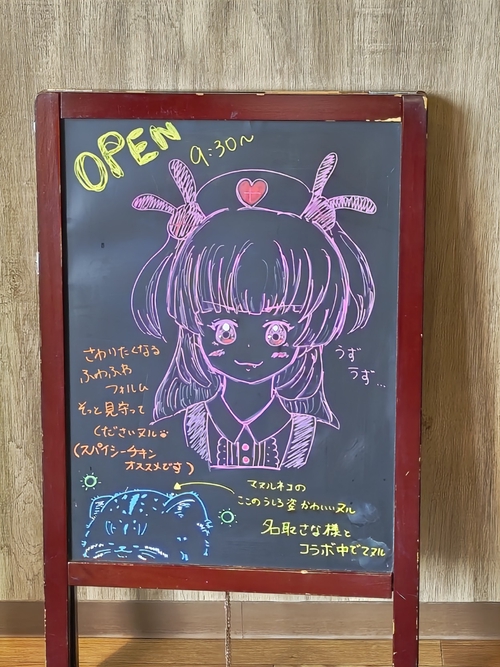 OPEN
9:30~
うず
うず…
さわりたくなる
ふわふわ
フォルム
そっと見守って
くださいヌル
(スパイシーチキン
オススメです)
マヌルネコの
ここのうしろ姿かわいいヌル
名取さな様と
コラボ中でマヌル